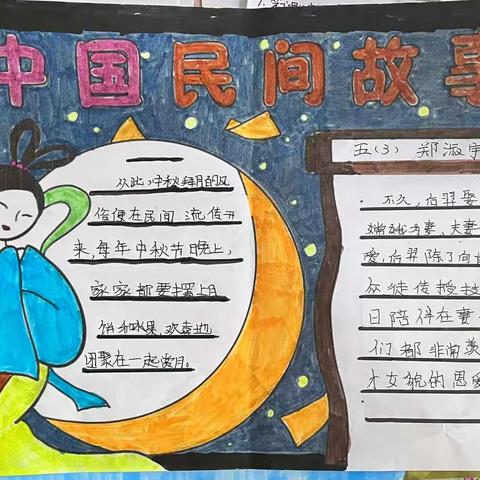 中国民间故事
从此,中秋拜月的风
俗便在民间流传开
来,每年中秋节晚上,
家家都要摆上月
饼和水果,欢喜地
团聚在一起赏月。
五(3) 郑淑宇
不久,后羿娶
嫦娥为妻,夫妻
爱,后羿除了向
众徒传授技
日陪伴在妻
们都非常羡
才女貌的恩爱